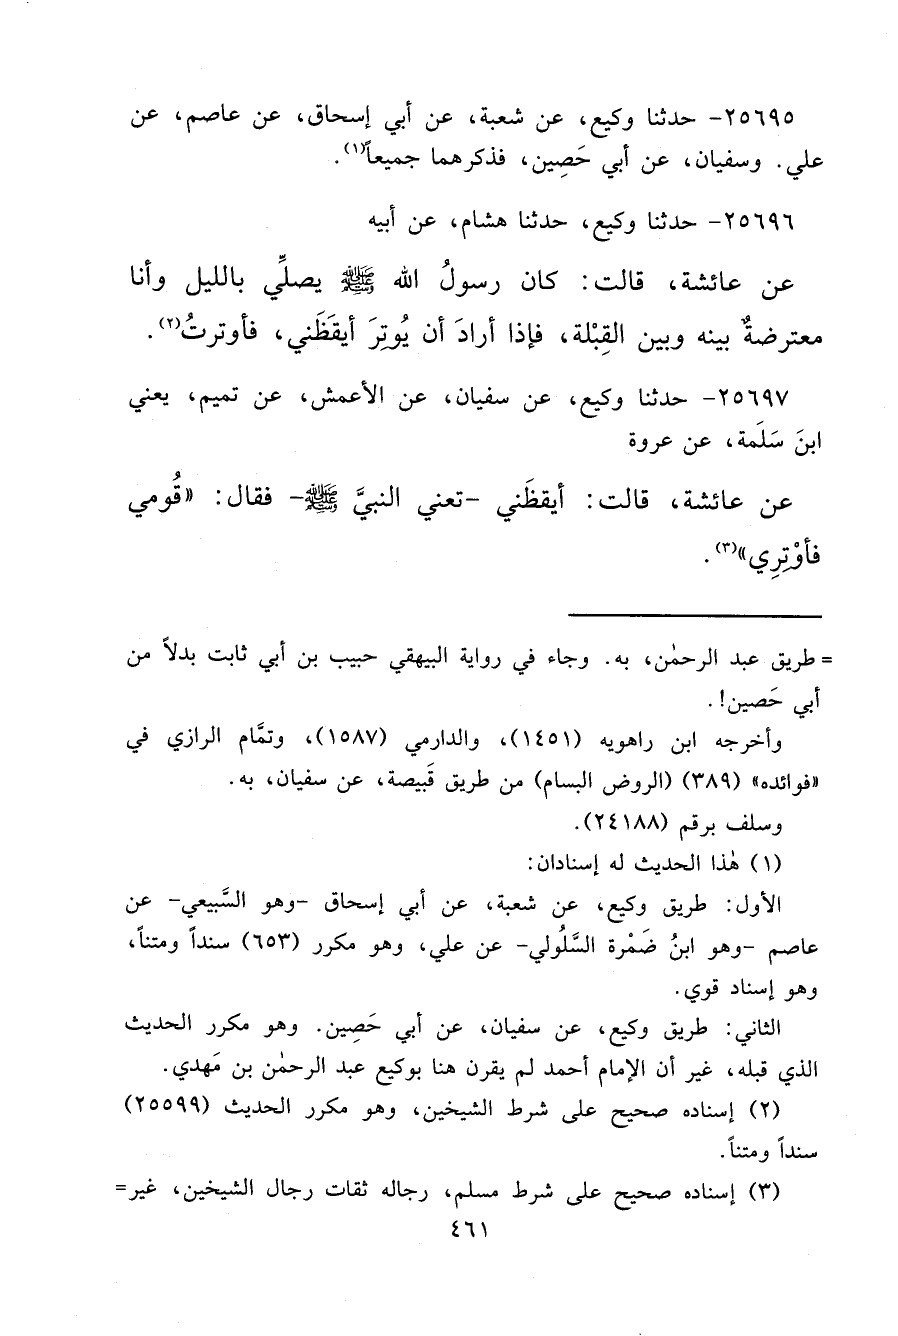 ٢٥٦٩٥- حدثنا وكيع، عن شعبة، عن أبي إسحاق، عن عاصم، عن
علي. وسفيان، عن أبي حَصِين، فذكرهما جميعاً(١).
٢٥٦٩٦- حدثنا وكيع، حدثنا هشام، عن أبيه
عن عائشة، قالت: كان رسولُ الله ﷺ يصلِّي بالليل وأنا
معترضةٌ بينه وبين القِبْلة، فإذا أرادَ أن يُوتِرَ أيقَظَني، فأوترتُ(٢).
٢٥٦٩٧- حدثنا وكيع، عن سفيان، عن الأعمش، عن تميم، يعني
ابنَ سَلَمة، عن عروة
عن عائشة، قالت: أيقظَني -تعني النبيَّ ﷺ- فقال: «قُومي
فأوْتِرِي»(٣).
= طريق عبد الرحمٰن، به. وجاء في رواية البيهقي حبيب بن أبي ثابت بدلاً من
أبي حَصين!.
وأخرجه ابن راهويه (١٤٥١)، والدارمي (١٥٨٧)، وتمَّام الرازي في
«فوائده» (٣٨٩) (الروض البسام) من طريق قَبيصة، عن سفيان، به.
وسلف برقم (٢٤١٨٨).
(١) هٰذا الحديث له إسنادان:
الأول: طريق وكيع، عن شعبة، عن أبي إسحاق -وهو السَّبيعي- عن
عاصم -وهو ابنُ ضَمْرة السَّلُولي- عن علي، وهو مكرر (٦٥٣) سنداً ومتناً،
وهو إسناد قوي.
الثاني: طريق وكيع، عن سفيان، عن أبي حَصِين. وهو مكرر الحديث
الذي قبله، غير أن الإمام أحمد لم يقرن هنا بوكيع عبد الرحمٰن بن مَهدي.
(٢) إسناده صحيح على شرط الشيخين، وهو مكرر الحديث (٢٥٥٩٩)
سنداً ومتناً.
(٣) إسناده صحيح على شرط مسلم، رجاله ثقات رجال الشيخين، غير=
٤٦١